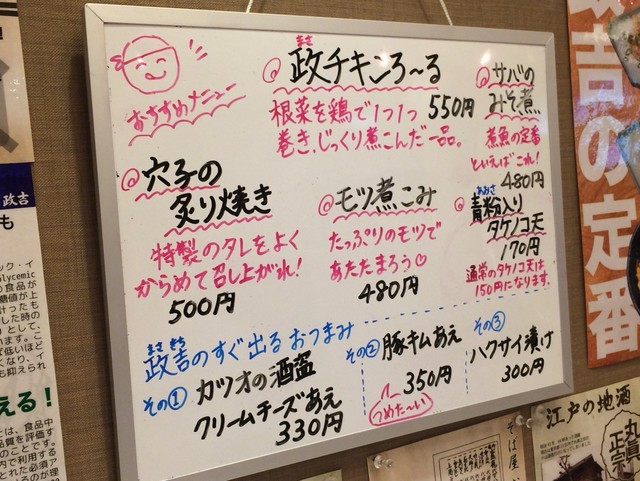 おすすめメニュー
まさ
◎政チキンろ〜る
根菜を鶏で1つ1つ
巻き、じっくり煮こんだ一品。
550円
◎サバの
みそ煮
煮魚の定番
といえばこれ!
480円
◎穴子の
炙り焼き
特製のタレをよく
からめて召し上がれ!
500円
◎モツ煮こみ
たっぷりのモツで
あたたまろう♡
480円
あおさ
◎青粉入り
タケノコ天
170円
通常のタケノコ天は
150円になります。
まさ きち
政吉のすぐ出るおつまみ
その① カツオの酒盗
クリームチーズあえ
330円
その② 豚キムあえ
350円
つめた〜い
その③
ハクサイ漬け
300円
吉の定番
政吉
も
江戸の地酒
丸真
正宗
そば屋
える!
は、食品中